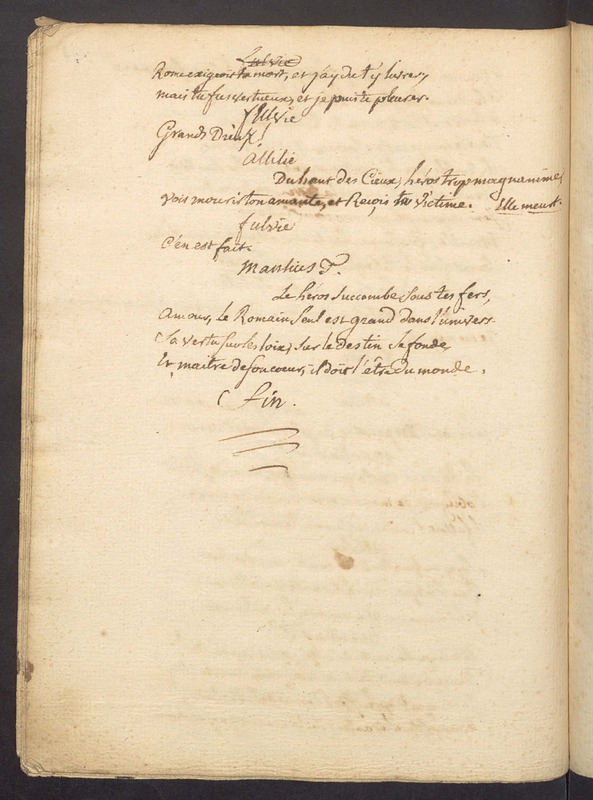 fulvie
Rome exigeoit ta mort, et j'ay du t'y livrer,
mais tu fus vertueux, et je puis te pleurer.
fulvie
Grands Dieux!
Attilie
Du haut des Cieux, héros trop magnanime,
vois mourir ton amante, et Reçois ta victime. Elle meurt.
fulvie
C'en est fait.
Manlius T.
Le héros succombe sous tes fers,
amour, le Romain seul est grand dans l'univers
Sa vertu sur les loix, sur le Destin se fonde
Et maitre de son coeur, il doit l'être du monde.
fin.